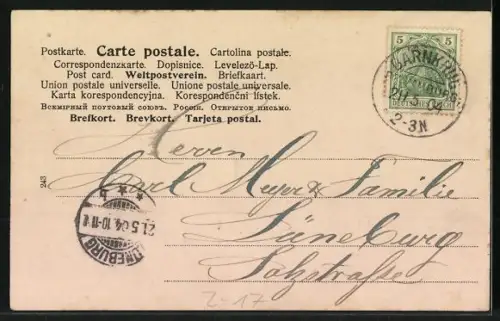 Postkarte. Carte postale. Cartolina postale.
Correspondenzkarte. Dopisnice. Levelező-Lap.
Post card. Weltpostverein. Briefkaart.
Union postale universelle. Unione postale universale.
Karta korespondencyjna. Korespondenční lístek.
Всемірный почтовый союзъ. Россія. Открытое письмо.
Brefkort. Brevkort. Tarjeta postal.
5 5
BARNKRUG
21 5 04
2-3N
Herrn
Carl Meyer & Familie
Lüneburg
Salzstraße
243
21.5.04.10-11
LÜNEBURG
2=17